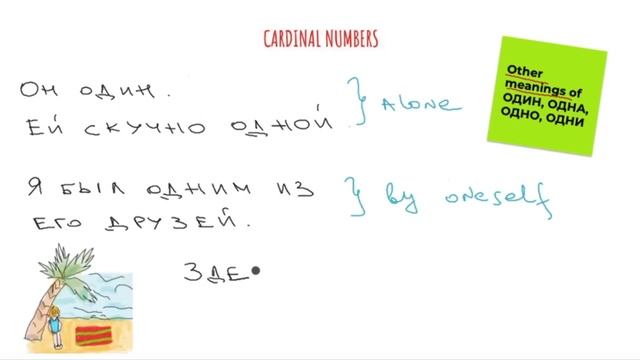 CARDINAL NUMBERS
Other
meanings of
ОДИН, ОДНА,
ОДНО, ОДНИ
ОН ОДИН.
ЕЙ СКУЧНО ОДНОЙ.
} ALONE
Я БЫЛ ОДНИМ ИЗ
ЕГО ДРУЗЕЙ.
} by oneself
ЗДЕ